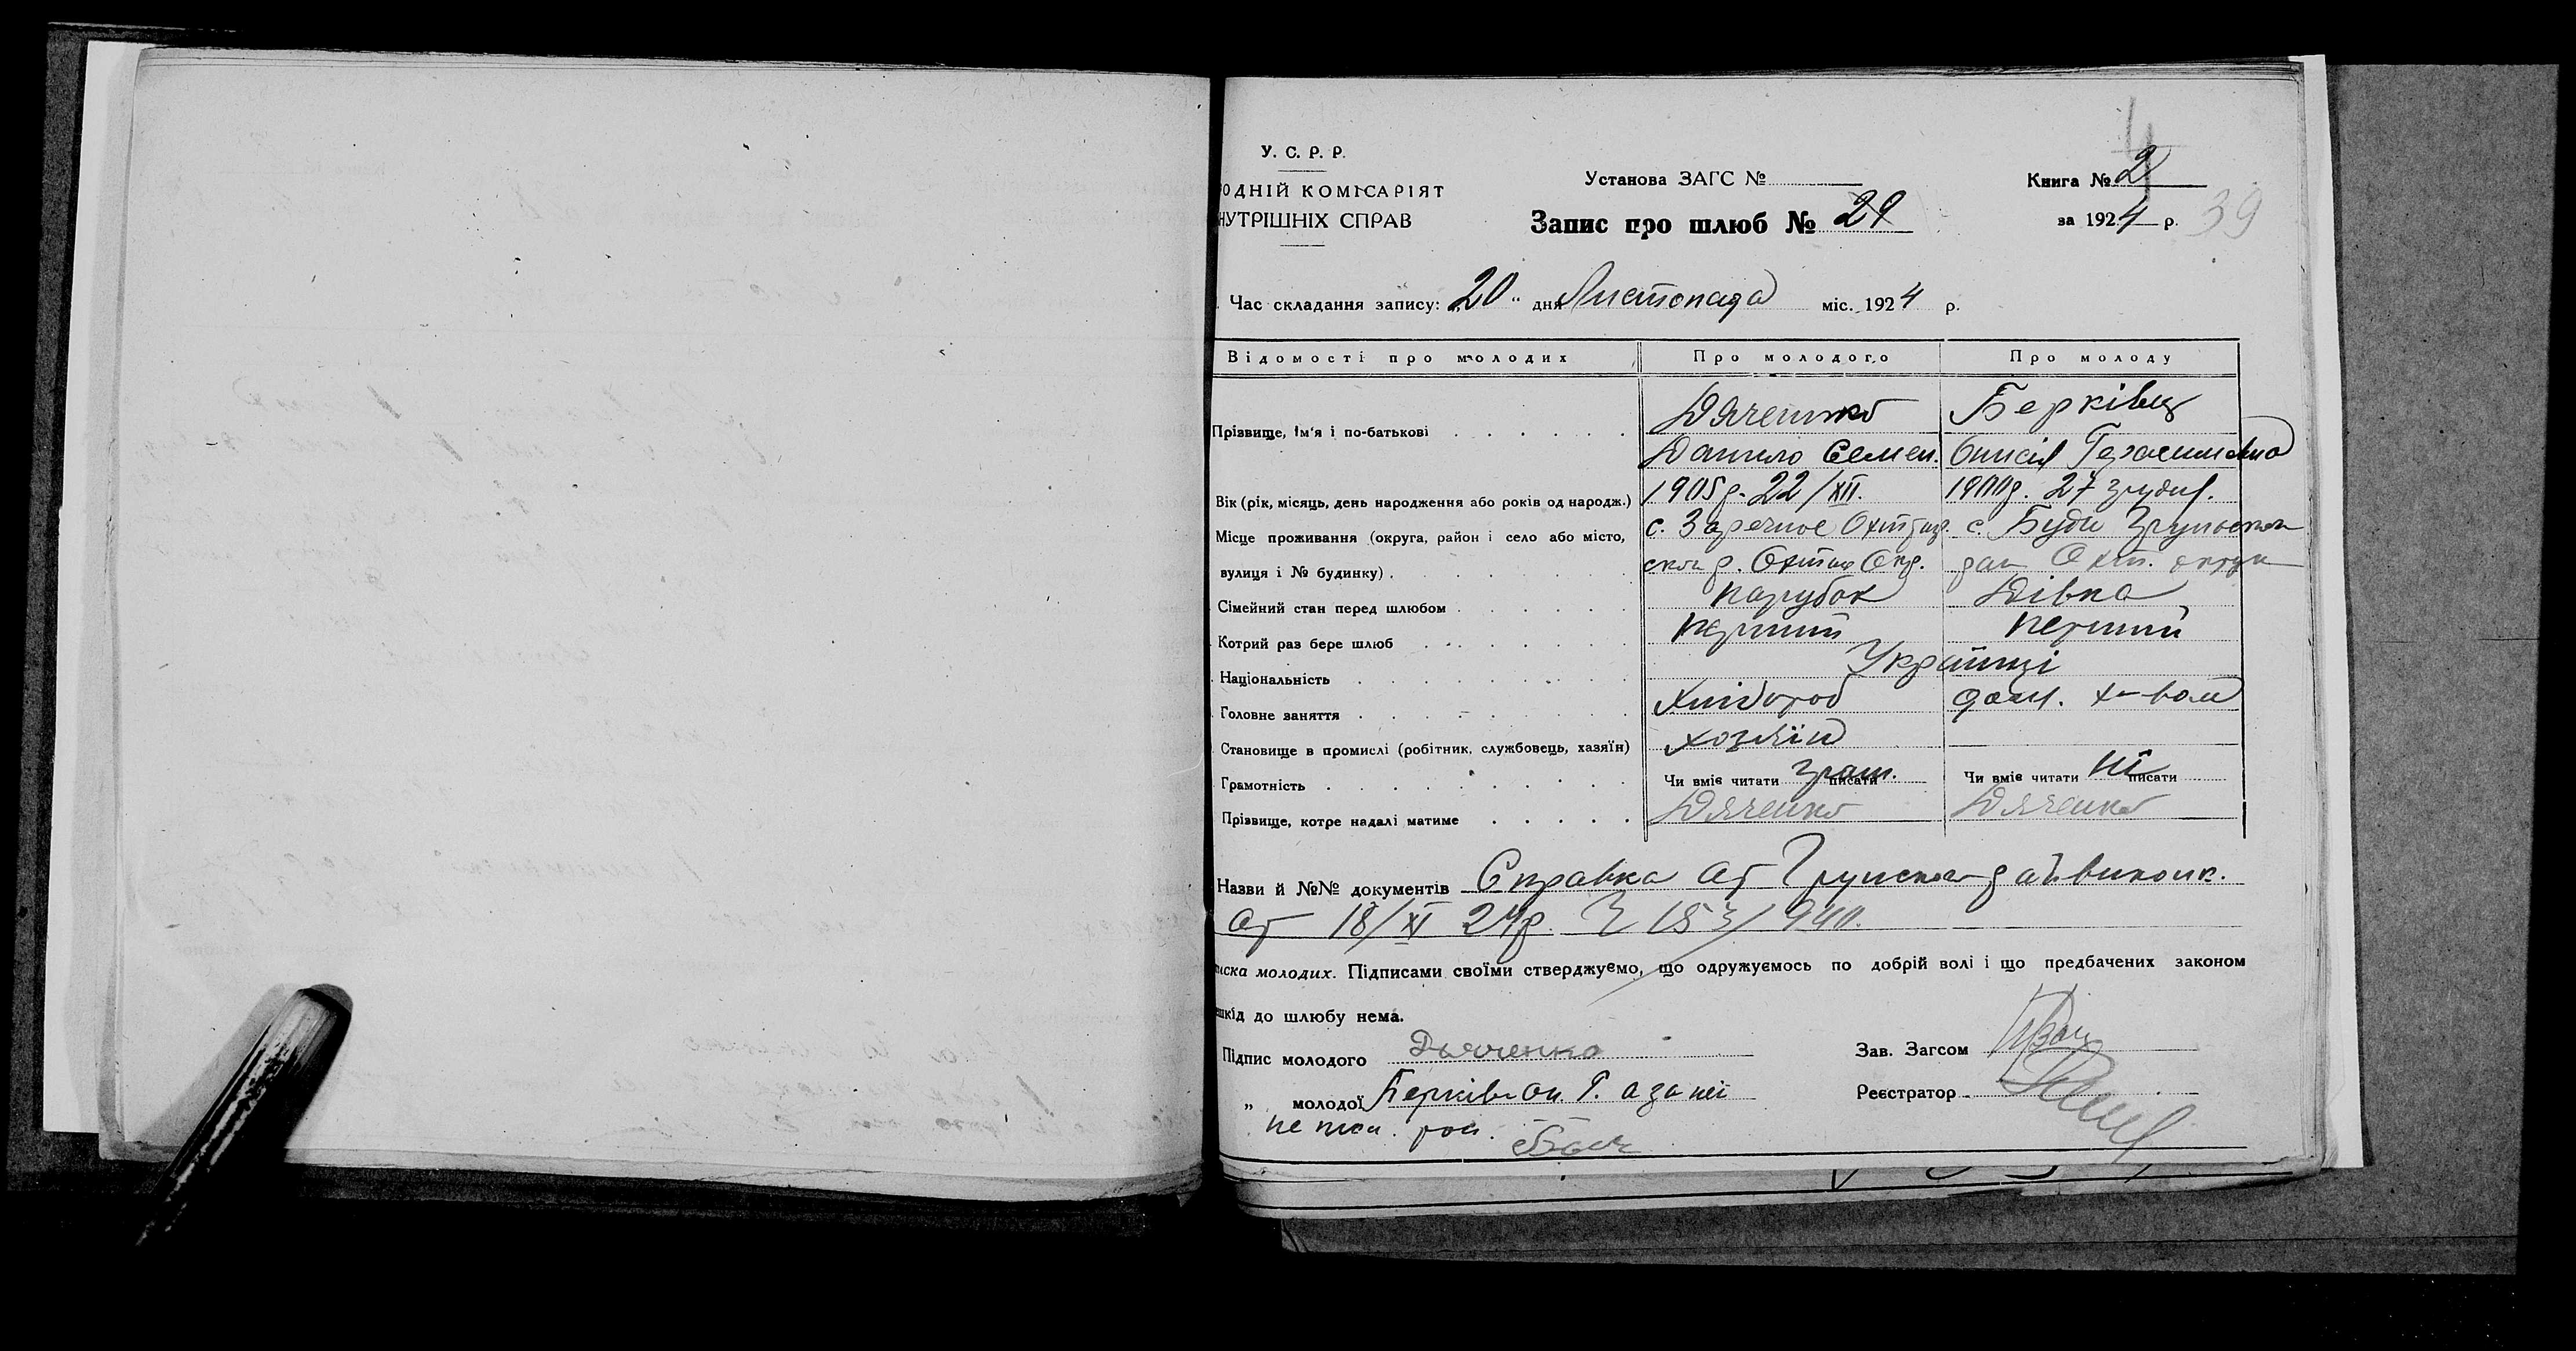 4
У. С. Р. Р.
ОДНІЙ КОМІСАРІЯТ
НУТРІШНІХ СПРАВ
Установа ЗАГС №
Запис про шлюб № 29
Книга № 2
за 1924 р. 39
Час складання запису: „20“ дня Листопада міс. 1924 р.
Відомості про молодих Про молодого Про молоду
Прізвище, ім'я і по-батькові Дяченко Берківц
Данило Семен. Онисія Герасимовна
Вік (рік, місяць, день народження або років од народж.) 1905р. 22/XII. 27 грудня.
Місце проживання (округа, район і село або місто, с. Заречное Охтир. с. Буди Грунськой
вулиця і № будинку) ской р. Охтир Окр. рай Охт. округи
Сімейний стан перед шлюбом Парубок Дівка
Котрий раз бере шлюб Перший Перший
Національність Українці
Головне заняття Хлібороб дом. х-вом
Становище в промислі (робітник, службовець, хазяїн) Хозяїн
Грамотність Чи вміє читати писати грам. Чи вміє читати писати Ні
Прізвище, котре надалі матиме Дяченко Дяченко
Назви й №№ документів Справка от Грунской райвиконк.
от 18/XI 24р. 153/940.
иска молодих. Підписами своїми стверджуємо, що одружуємось по добрій волі і що предбачених законом
шкід до шлюбу нема.
Підпис молодого Дьяченко Зав. Загсом
„ молодої Берківц Он. Г. а за неї Реєстратор
не пись. рос.